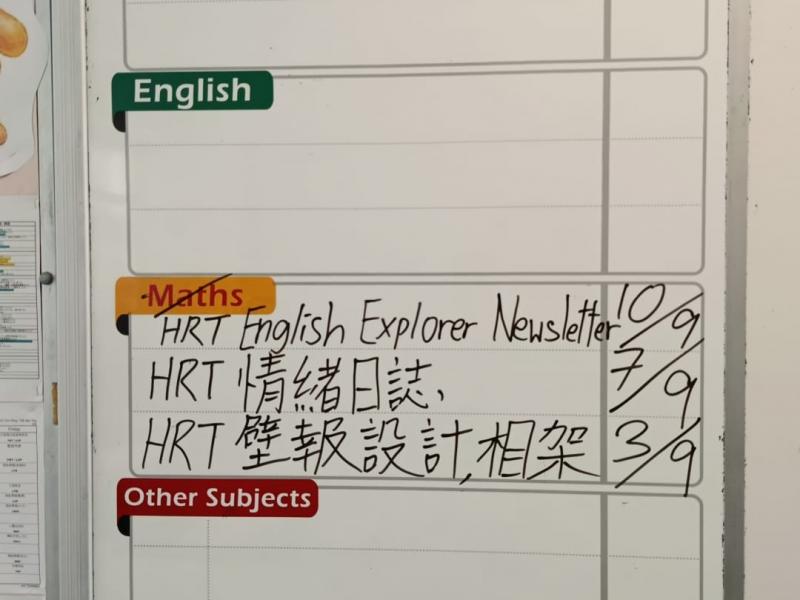 English
Maths
HRT English Explorer Newsletter 10/9
HRT 情緒日誌, 7/9
HRT 壁報設計,相架 3/9
Other Subjects